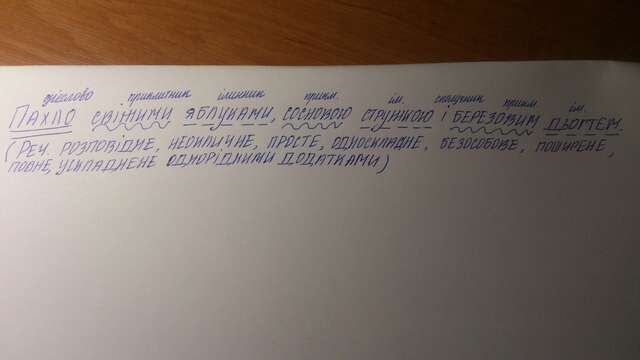 дієслово прикметник іменник прикм. ім. сполучник прикм ім
ПАХЛО СВІЖИМИ ЯБЛУКАМИ, СОСНОВОЮ СТРУЖКОЮ І БЕРЕЗОВИМ ДЬОГТЕМ.
(РЕЧ. РОЗПОВІДНЕ, НЕОКЛИЧНЕ, ПРОСТЕ, ОДНОСКЛАДНЕ, БЕЗОСОБОВЕ, ПОШИРЕНЕ,
ПОВНЕ, УСКЛАДНЕНЕ ОДНОРІДНИМИ ДОДАТКАМИ)